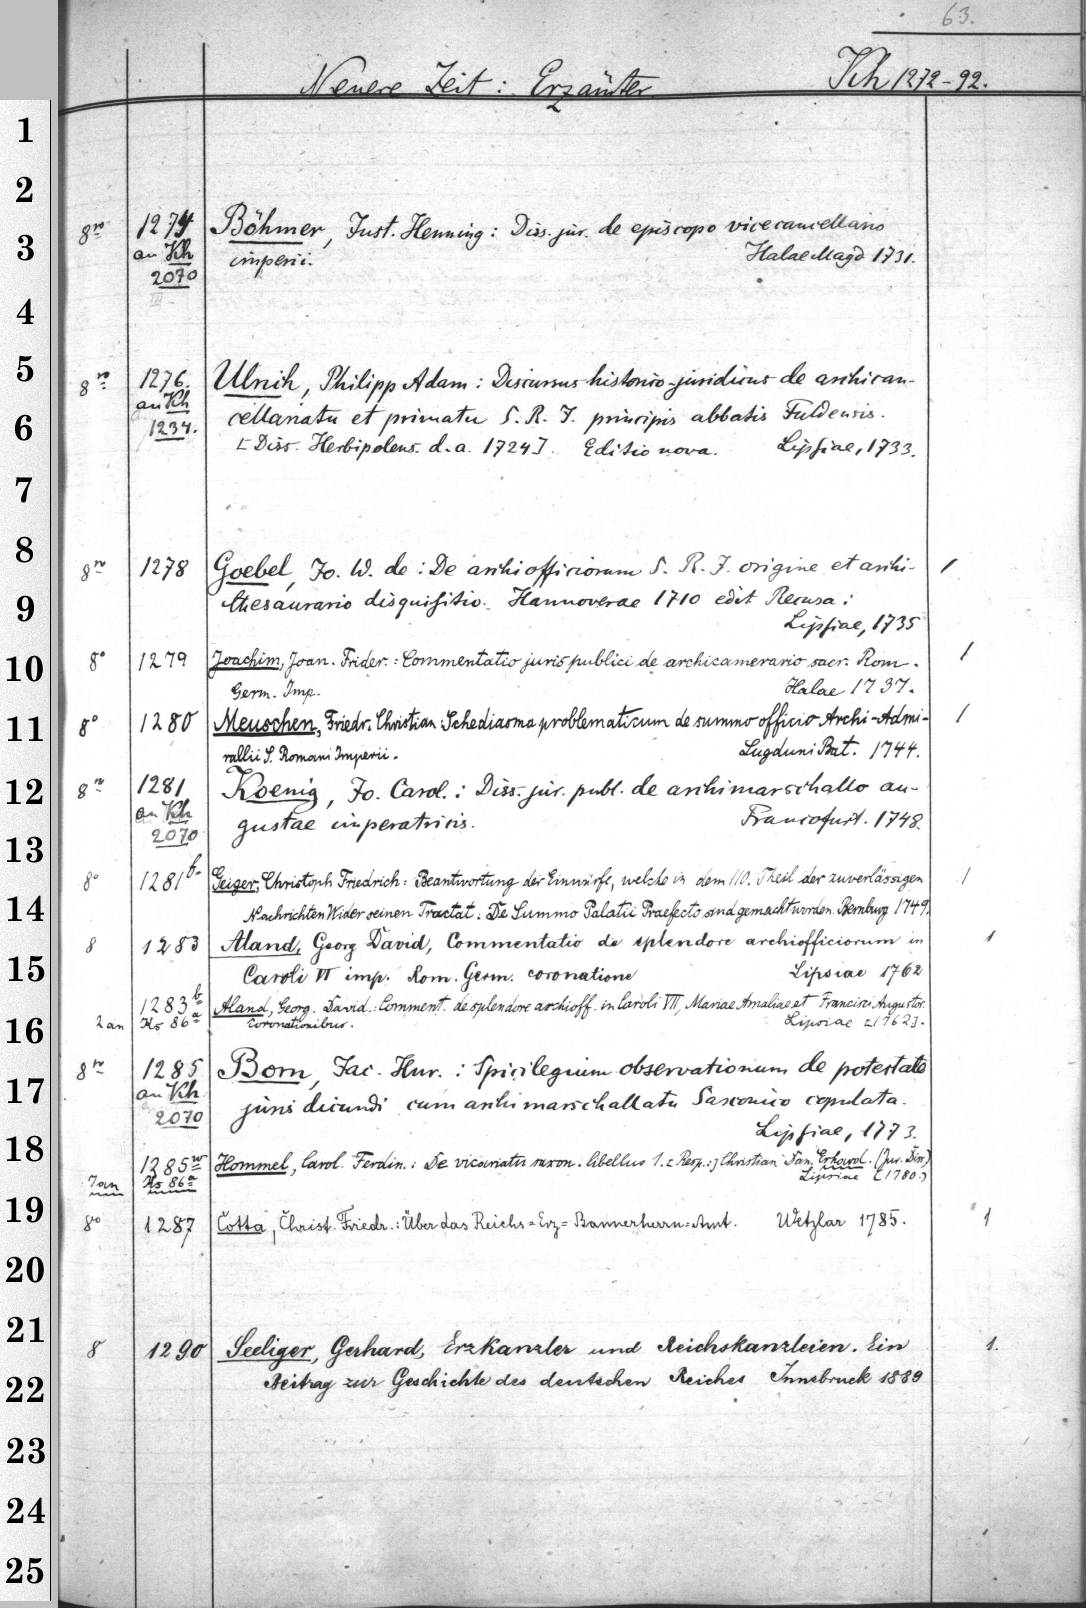 63.
Neuere Zeit: Erzämter Kh 1272-92.
1
2
8ro 1274 Böhmer, Just. Henning: Diss. jur. de episcopo vicecancellario
3 an Kh imperii. Halae Magd 1731.
2070
III
4
5 8ro 1276. Ulrich, Philipp Adam: Discursus historico-juridicus de archican-
an Kh cellariatu et primatu S. R. I. principis abbatis Fuldensis.
6 1234. [Diss. Herbipolens. d. a. 1724]. Editio nova. Lipsiae, 1733.
7
8 8ro 1278 Goebel, Jo. W. de: De archiofficiorum S. R. I. origine et archi- 1
9 thesaurario disquisitio. Hannoverae 1710 edit. Recusa:
Lipsiae, 1735
10 8° 1279 Joachim, Joan. Frider.: Commentatio juris publici de archicamerario sacr. Rom. 1
Germ. Imp. Halae 1737.
11 8° 1280 Meuschen, Friedr. Christian: Schediasma problematicum de summo officio Archi-Admi- 1
rallii S. Romani Imperii. Lugduni Bat. 1744.
12 8ro 1281 Koenig, Jo. Carol.: Diss. jur. publ. de archimarschallo au-
an Kh gustae imperatricis. Francofurt. 1748.
2070
13
8° 1281b. Geiger, Christoph Friedrich: Beantwortung der Einwürfe, welche in dem 110. Theil der zuverlässigen 1
14 Nachrichten Wider seinen Tractat: De Summo Palatii Praefecto sind gemacht worden. Bernburg 1749.
8 1283 Aland, Georg David, Commentatio de splendore archiofficiorum in 1
15 Caroli VII imp. Rom. Germ. coronatione Lipsiae 1762
1283b Aland, Georg. David.: Comment. de splendore archioff. in Caroli VII, Mariae Amaliae et Francisci Augustor.
16 2 an Ks 86a coronationibus. Lipsiae [1762].
8ro 1285 Born, Jac. Henr.: Spicilegium observationum de potestate
17 an Kh juris dicundi cum archimarschallatu Saxonico copulata.
2070
Lipsiae, 1773.
18 1285w Hommel, Carol. Ferdin.: De vicariatu saxon. libellus 1. [Resp.:] Christian Dan. Erhard. (Jur. Diss)
7 an Ks 86a Lipsiae [1780.]
19 8° 1287 Cotta, Christ. Friedr.: Über das Reichs=Erz=Bannerherrn=Amt. Wetzlar 1785. 1
20
21 8 1290 Seeliger, Gerhard, Erzkanzler und Reichskanzleien. Ein 1.
22 Beitrag zur Geschichte des deutschen Reiches Innsbruck 1889
23
24
25